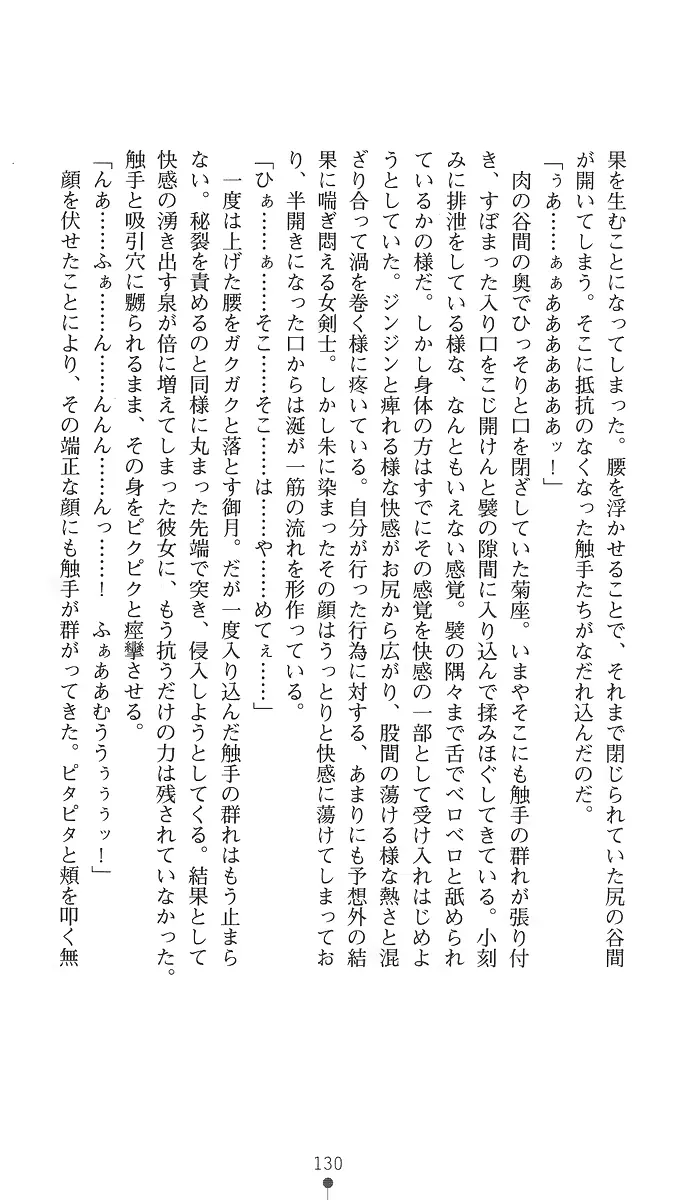 果を生むことになってしまった。腰を浮かせることで、それまで閉じられていた尻の谷間
が開いてしまう。そこに抵抗のなくなった触手たちがなだれ込んだのだ。
「ぅあ……ぁぁあああああああッ！」
肉の谷間の奥でひっそりと口を閉ざしていた菊座。いまやそこにも触手の群れが張り付
き、すぼまった入り口をこじ開けんと襞の隙間に入り込んで揉みほぐしてきている。小刻
みに排泄をしている様な、なんともいえない感覚。襞の隅々まで舌でベロベロと舐められ
ているかの様だ。しかし身体の方はすでにその感覚を快感の一部として受け入れはじめよ
うとしていた。ジンジンと痺れる様な快感がお尻から広がり、股間の蕩ける様な熱さと混
ざり合って渦を巻く様に疼いている。自分が行った行為に対する、あまりにも予想外の結
果に喘ぎ悶える女剣士。しかし朱に染まったその顔はうっとりと快感に蕩けてしまってお
り、半開きになった口からは涎が一筋の流れを形作っている。
「ひぁ……ぁ……そこ……そこ……は……や……めてぇ……」
一度は上げた腰をガクガクと落とす御月。だが一度入り込んだ触手の群れはもう止まら
ない。秘裂を責めるのと同様に丸まった先端で突き、侵入しようとしてくる。結果として
快感の湧き出す泉が倍に増えてしまった彼女に、もう抗うだけの力は残されていなかった。
触手と吸引穴に嬲られるまま、その身をピクピクと痙攣させる。
「んあ……ふぁ……ん……んんん……んっ……！　ふぁああむううぅぅぅッ！」
顔を伏せたことにより、その端正な顔にも触手が群がってきた。ピタピタと頬を叩く無
130